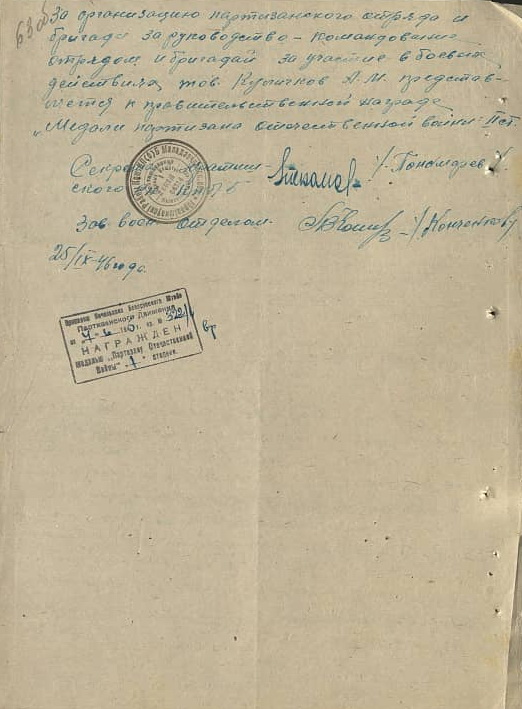 63об
За организацию партизанского отряда и
бригады за руководство – командование
отрядом и бригадой за участие в боевых
действиях, тов. Куличков А.М. представ-
ляется к правительственной награде
"Медали партизана отечественной войны" II ст.
Секретарь
ского КП(б)Б /Пономарев/
Зав. воен. отделом /Конченков/
25/IX-46 года.
Приказом Начальника Белорусского Штаба
Партизанского Движения
от за №
НАГРАЖДЕН
медалью "Партизану Отечественной
Войны" "1" степени.